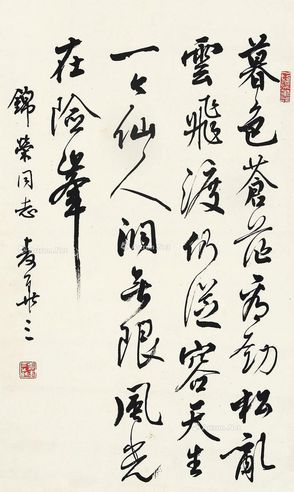 暮色蒼茫看勁松亂
雲飛渡仍從容天生
一个仙人洞無限風光
在險峰
錦榮同志 麦華三